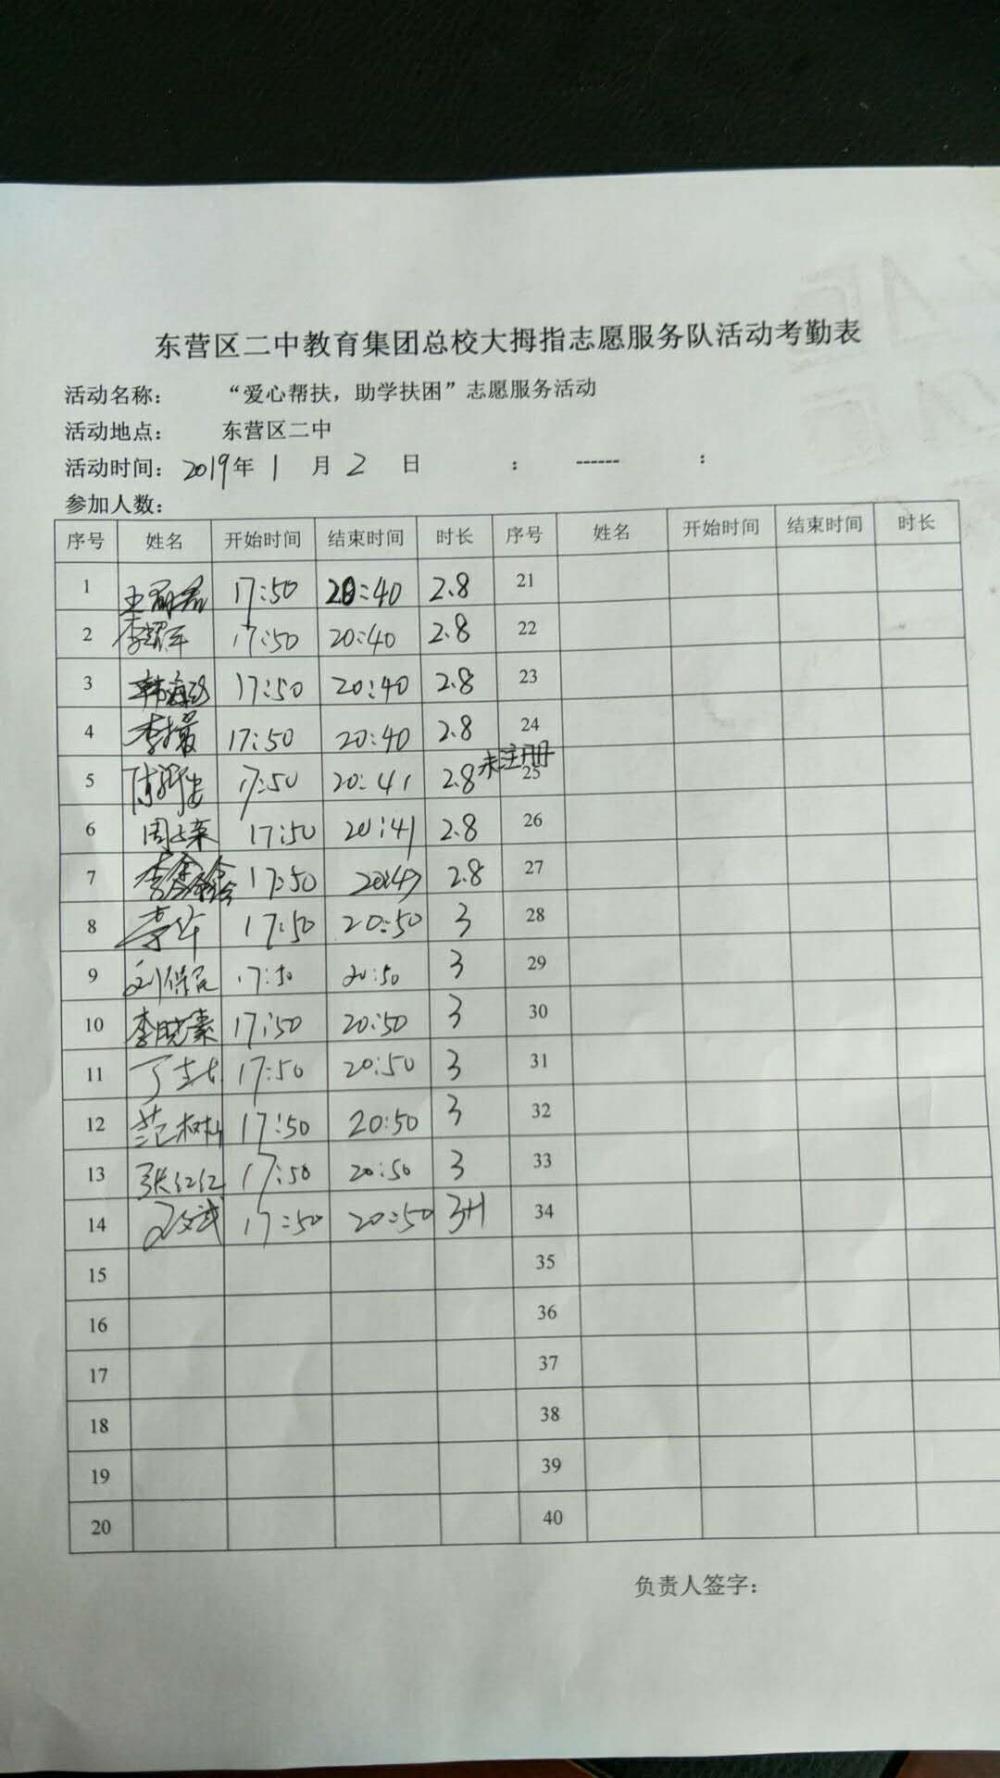 东营区二中教育集团总校大拇指志愿服务队活动考勤表
活动名称： “爱心帮扶，助学扶困”志愿服务活动
活动地点： 东营区二中
活动时间：2019年 1 月 2 日 : ------ :
参加人数：
序号 姓名 开始时间 结束时间 时长 序号 姓名 开始时间 结束时间 时长
1 17:50 20:40 2.8 21
2 李耀军 17:50 20:40 2.8 22
3 17:50 20:40 2.8 23
4 17:50 20:40 2.8 24
5 17:50 20:41 2.8 未注册 25
6 17:50 20:41 2.8 26
7 17:50 20:47 2.8 27
8 李华 17:50 20:50 3 28
9 17:50 20:50 3 29
10 李晓素 17:50 20:50 3 30
11 17:50 20:50 3 31
12 范树林 17:50 20:50 3 32
13 张红红 17:50 20:50 3 33
14 17:50 20:50 3H 34
15 35
16 36
17 37
18 38
19 39
20 40
负责人签字：